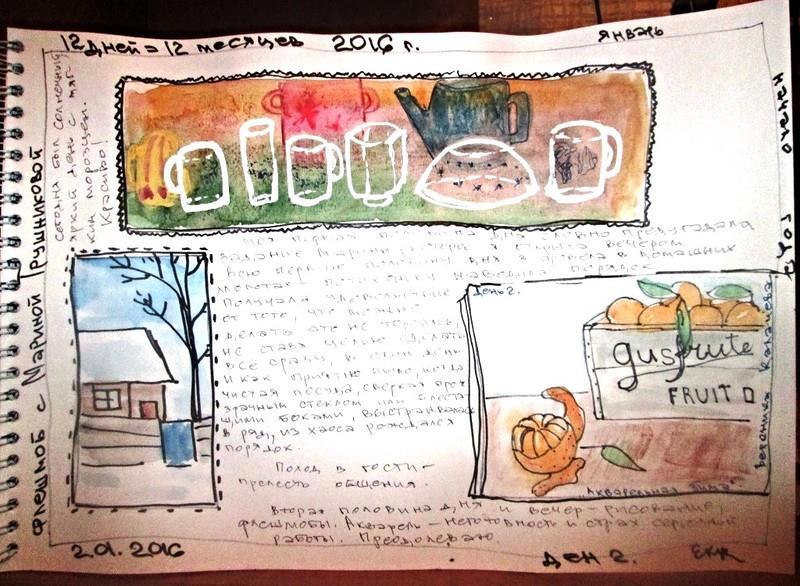 12 дней = 12 месяцев 2016 г.
январь
Сегодня был солнечный
яркий день с мяг-
ким морозцем.
Красиво!
флешмоб с Мариной Трушниковой
Моя первая половина дня словно предугадала
задание Марины, которое я вечером
Всю первую половину дня я провела в домашних
наводила порядок
Получала удовольствие
от того, что можно
делать это не торопясь,
не ставя целью сделать
всё сразу, в один день
И как приятно было, когда
чистая посуда, сверкая проз-
рачным стеклом или блестя-
щими боками, выстраивалась
в ряд, из хаоса рождался
порядок.
Поход в гости -
прелесть общения.
Вторая половина дня и вечер - рисование,
флешмобы. Акварель - неготовность и страх серьёзной
работы. Преодолеваю.
День 2.
gusfrute
FRUIT
"Акварельная зима"
Вероника Калачева
2.01.2016
День 2.